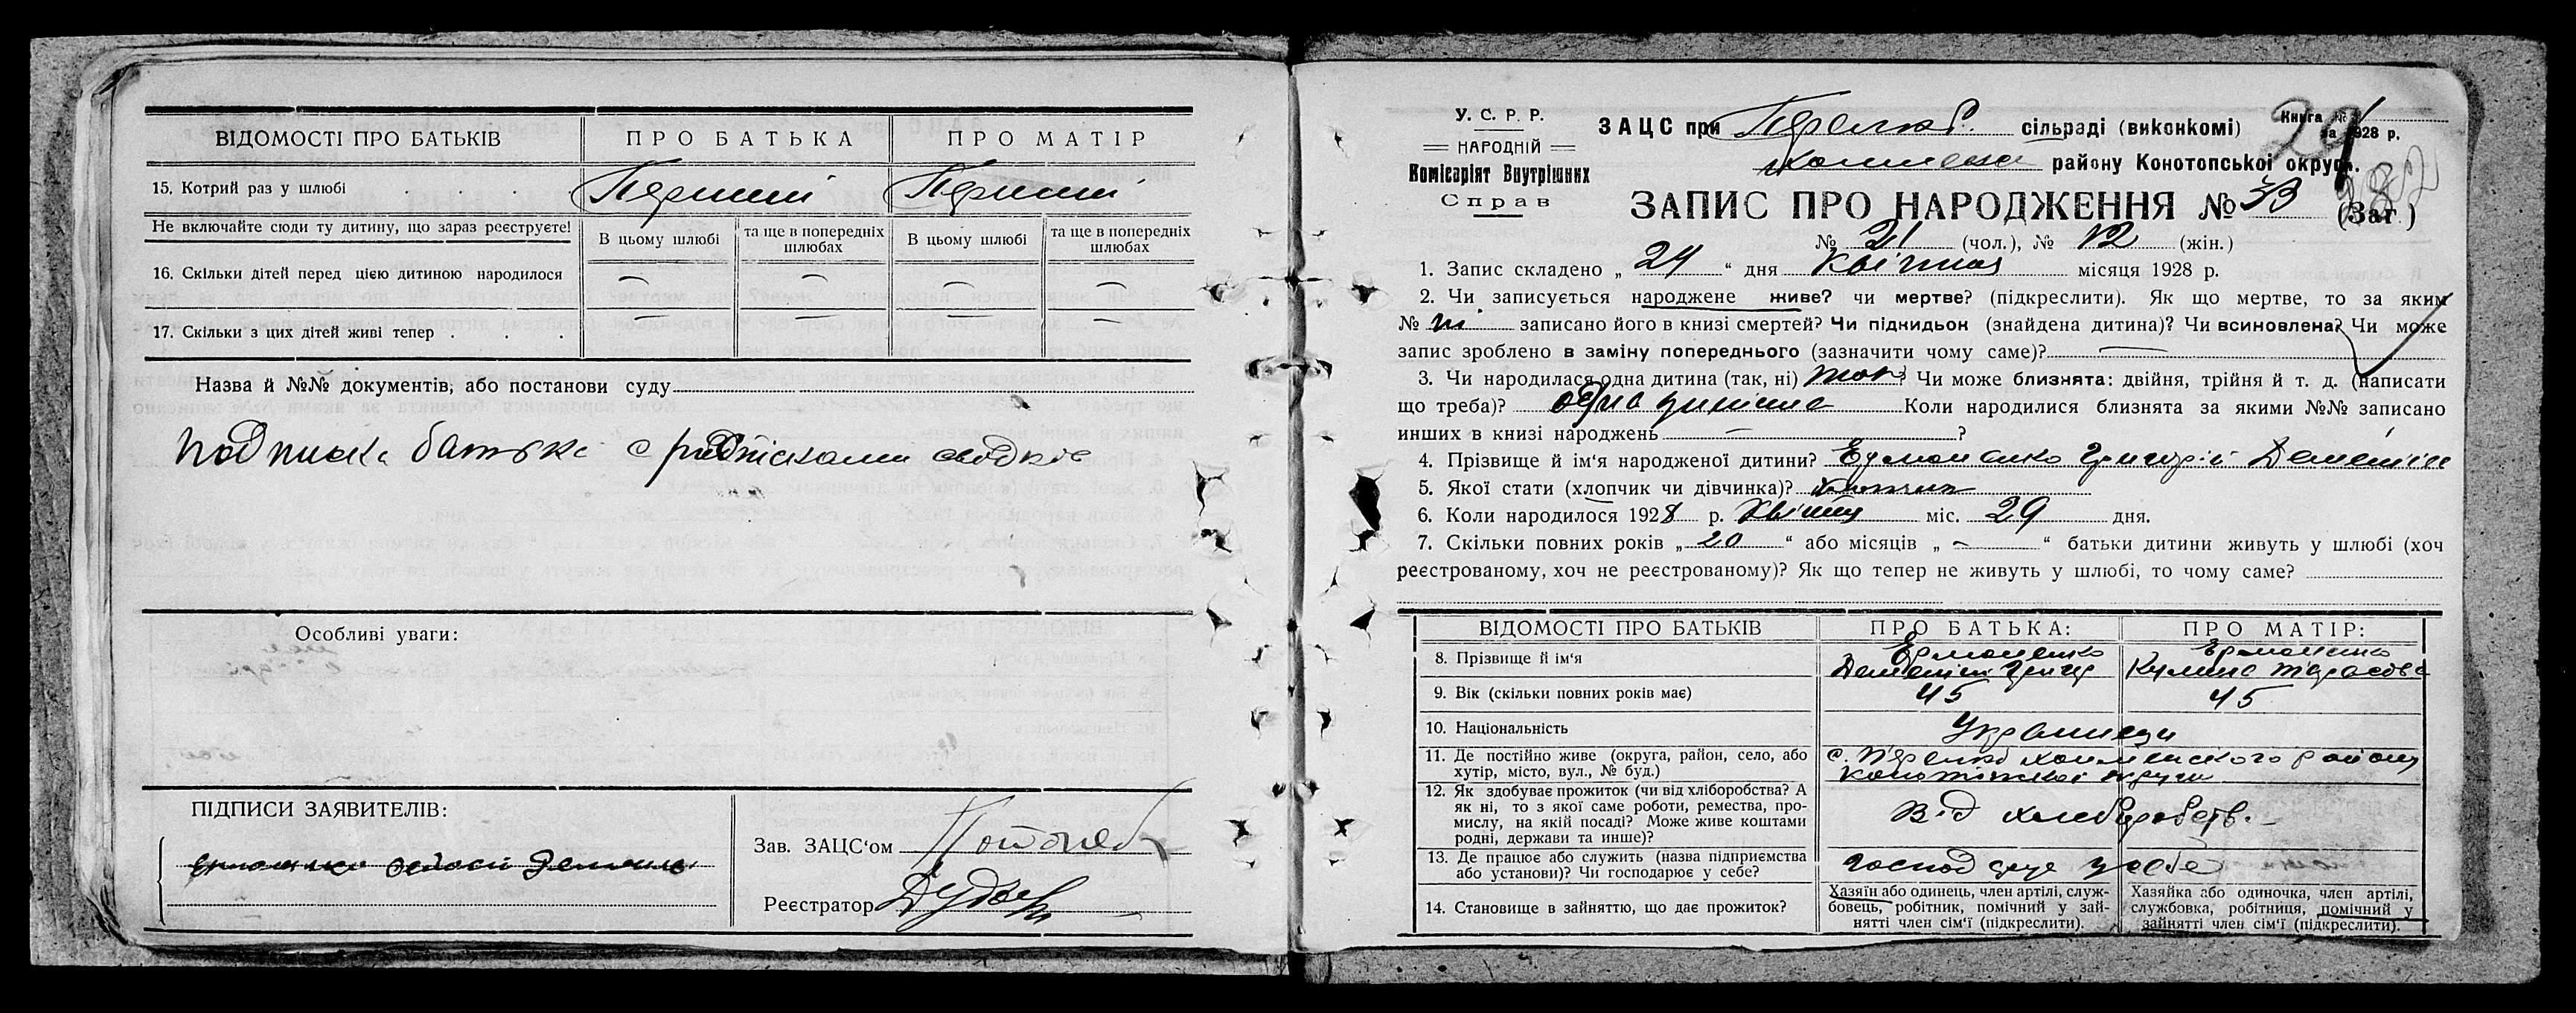 ВІДОМОСТІ ПРО БАТЬКІВ
ПРО БАТЬКА
ПРО МАТІР
15. Котрий раз у шлюбі . . . .
Перший
Перший
Не включайте сюди ту дитину, що зараз реєструєте!
В цьому шлюбі
та ще в попередніх шлюбах
В цьому шлюбі
та ще в попередніх шлюбах
16. Скільки дітей перед цією дитиною народилося
— — — —
17. Скільки з цих дітей живі тепер . . .
— — — —
Назва й №№ документів, або постанови суду
подписка батька с
Особливі уваги:
ПІДПИСИ ЗАЯВИТЕЛІВ:
Зав. ЗАЦС'ом
Реєстратор
У. С. Р. Р.
НАРОДНІЙ
Комісаріят Внутрішних
Справ
ЗАЦС при Перелюб. сільраді (виконкомі)
Книга №
за 1928 р.
району Конотопської округи.
ЗАПИС ПРО НАРОДЖЕННЯ № 33 (Заг.)
№ 21 (чол.), № 12 (жін.)
1. Запис складено „ 24 “ дня Квітня місяця 1928 р.
2. Чи записується народжене живе? чи мертве? (підкреслити). Як що мертве, то за яким
№ ні записано його в книзі смертей? Чи піднидьок (знайдена дитина)? Чи всиновлена? Чи може
запис зроблено в заміну попереднього (зазначити чому саме)? —
3. Чи народилася одна дитина (так, ні) так? Чи може близнята: двійня, трійня й т. д. (написати
що треба)? одна Коли народилися близнята за якими №№ записано
инших в книзі народжень — ?
4. Прізвище й ім'я народженої дитини? Григорій
5. Якої стати (хлопчик чи дівчинка)? хлопчик
6. Коли народилося 1928 р. Квітня міс. 29 дня.
7. Скільки повних років „ 20 “ або місяців „ — “ батьки дитини живуть у шлюбі (хоч
реєстрованому, хоч не реєстрованому)? Як що тепер не живуть у шлюбі, то чому саме?
ВІДОМОСТІ ПРО БАТЬКІВ
ПРО БАТЬКА:
ПРО МАТІР:
8. Прізвище й ім'я
9. Вік (скільки повних років має)
45
45
10. Національність
Українці
11. Де постійно живе (округа, район, село, або
хутір, місто, вул., № буд.)
с. Перелюб району
Конотопської округи
12. Як здобуває прожиток (чи від хліборобства? А
як ні, то з якої саме роботи, ремества, про-
мислу, на якій посаді? Може живе коштами
родні, держави та инше)?
Від хлеборобств.
13. Де працює або служить (назва підприємства
або установи)? Чи господарює у себе?
у себе
14. Становище в зайняттю, що дає прожиток?
Хазяїн або одинець, член артілі, служ-
бовець, робітник, помічний у зай-
нятті член сім'ї (підкреслити).
Хазяйка або одиночка, член артілі,
службовка, робітниця, помічний у
зайнятті член сім'ї (підкреслити).